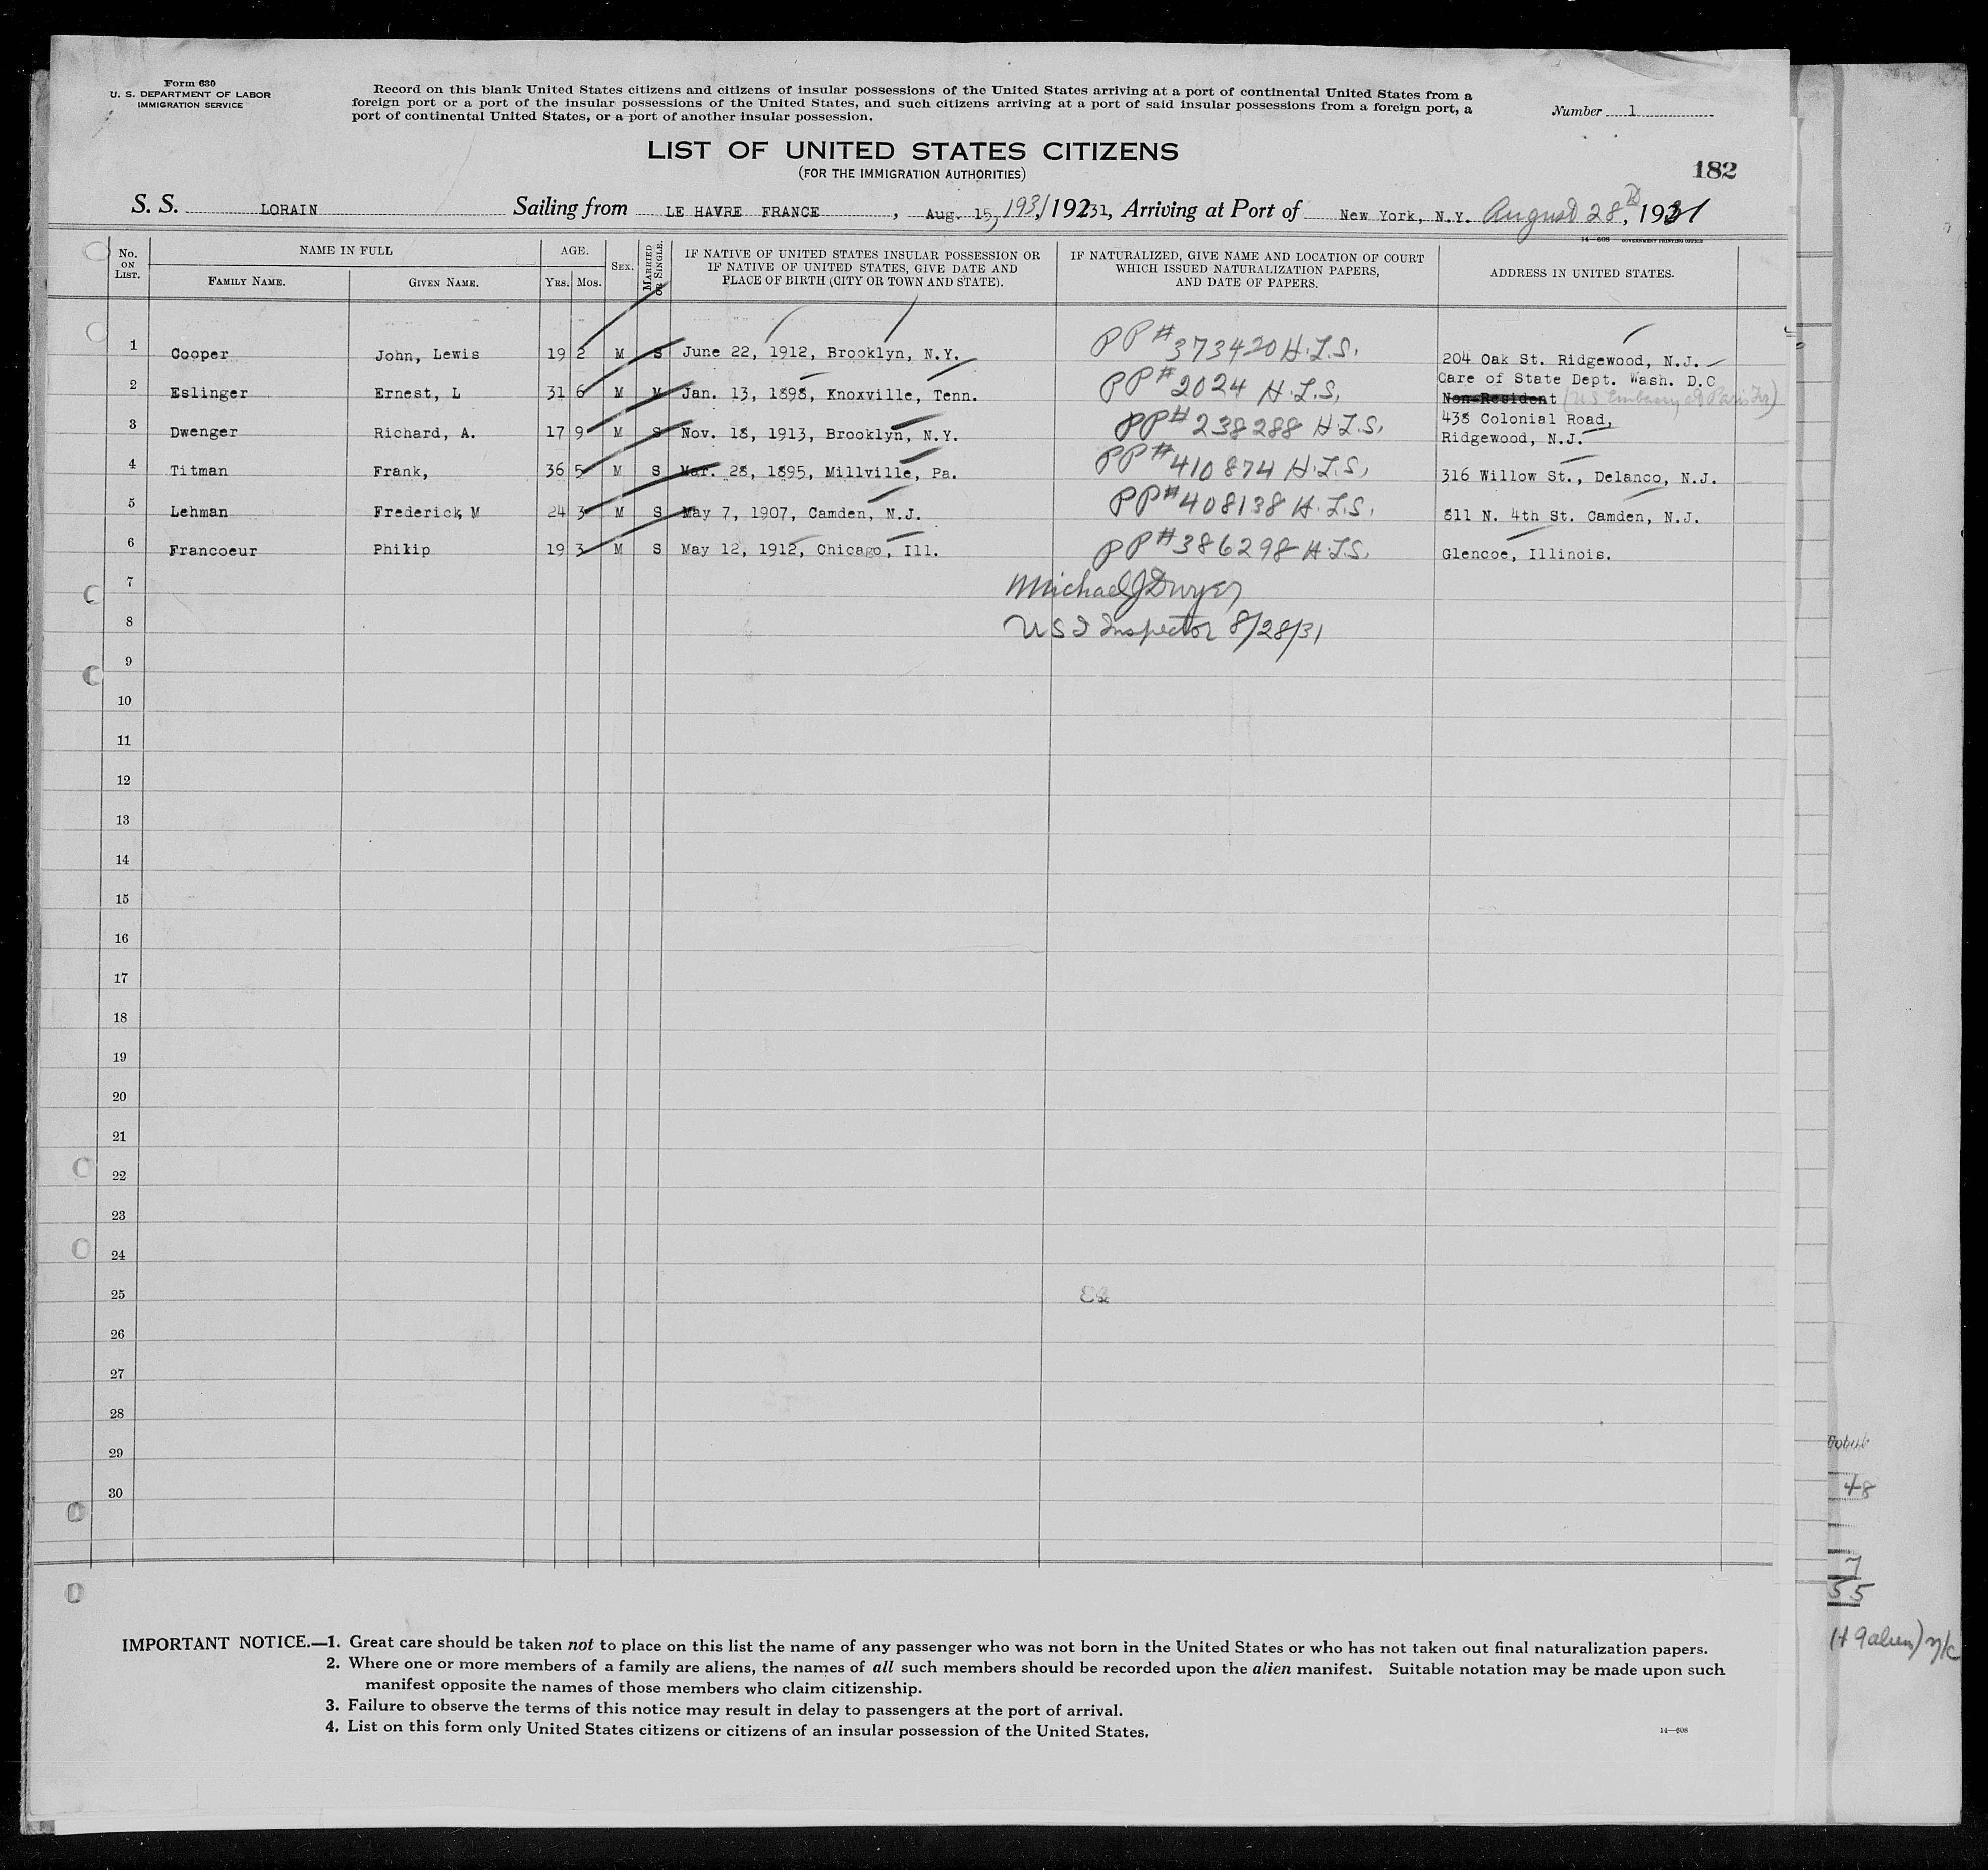 Form 630
U. S. DEPARTMENT OF LABOR
IMMIGRATION SERVICE
Record on this blank United States citizens and citizens of insular possessions of the United States arriving at a port of continental United States from a
foreign port or a port of the insular possessions of the United States, and such citizens arriving at a port of said insular possessions from a foreign port, a
port of continental United States, or a port of another insular possession.
Number 1
LIST OF UNITED STATES CITIZENS
(FOR THE IMMIGRATION AUTHORITIES)
182
S. S. LORAIN Sailing from LE HAVRE FRANCE, Aug. 15, 1931, 19231, Arriving at Port of New York, N.Y. August 28th, 1931
14—608 GOVERNMENT PRINTING OFFICE
No. ON LIST. NAME IN FULL FAMILY NAME. GIVEN NAME. AGE. YRS. MOS. SEX. MARRIED OR SINGLE. IF NATIVE OF UNITED STATES INSULAR POSSESSION OR IF NATIVE OF UNITED STATES, GIVE DATE AND PLACE OF BIRTH (CITY OR TOWN AND STATE). IF NATURALIZED, GIVE NAME AND LOCATION OF COURT WHICH ISSUED NATURALIZATION PAPERS, AND DATE OF PAPERS. ADDRESS IN UNITED STATES.
1 Cooper John, Lewis 19 2 M S June 22, 1912, Brooklyn, N.Y. PP# 373420 H.L.S. 204 Oak St. Ridgewood, N.J.
2 Eslinger Ernest, L 31 6 M M Jan. 13, 1898, Knoxville, Tenn. PP# 2024 H.L.S. Care of State Dept. Wash. D.C
Non-Resident (U.S. Embassy at Paris Fr)
3 Dwenger Richard, A. 17 9 M S Nov. 18, 1913, Brooklyn, N.Y. PP# 238288 H.L.S. 438 Colonial Road,
Ridgewood, N.J.
4 Titman Frank, 36 5 M S Mar. 28, 1895, Millville, Pa. PP# 410874 H.L.S. 316 Willow St., Delanco, N.J.
5 Lehman Frederick M 24 3 M S May 7, 1907, Camden, N.J. PP# 408138 H.L.S. 811 N. 4th St. Camden, N.J.
6 Francoeur Philip 19 3 M S May 12, 1912, Chicago, Ill. PP# 386298 H.L.S. Glencoe, Illinois.
7 Michael J Dwyer
8 U S I Inspector 8/28/31
9
10
11
12
13
14
15
16
17
18
19
20
21
22
23
24
25
26
27
28
29
30
48
7
55
IMPORTANT NOTICE.—1. Great care should be taken not to place on this list the name of any passenger who was not born in the United States or who has not taken out final naturalization papers.
2. Where one or more members of a family are aliens, the names of all such members should be recorded upon the alien manifest. Suitable notation may be made upon such
manifest opposite the names of those members who claim citizenship.
3. Failure to observe the terms of this notice may result in delay to passengers at the port of arrival.
4. List on this form only United States citizens or citizens of an insular possession of the United States.
14—608